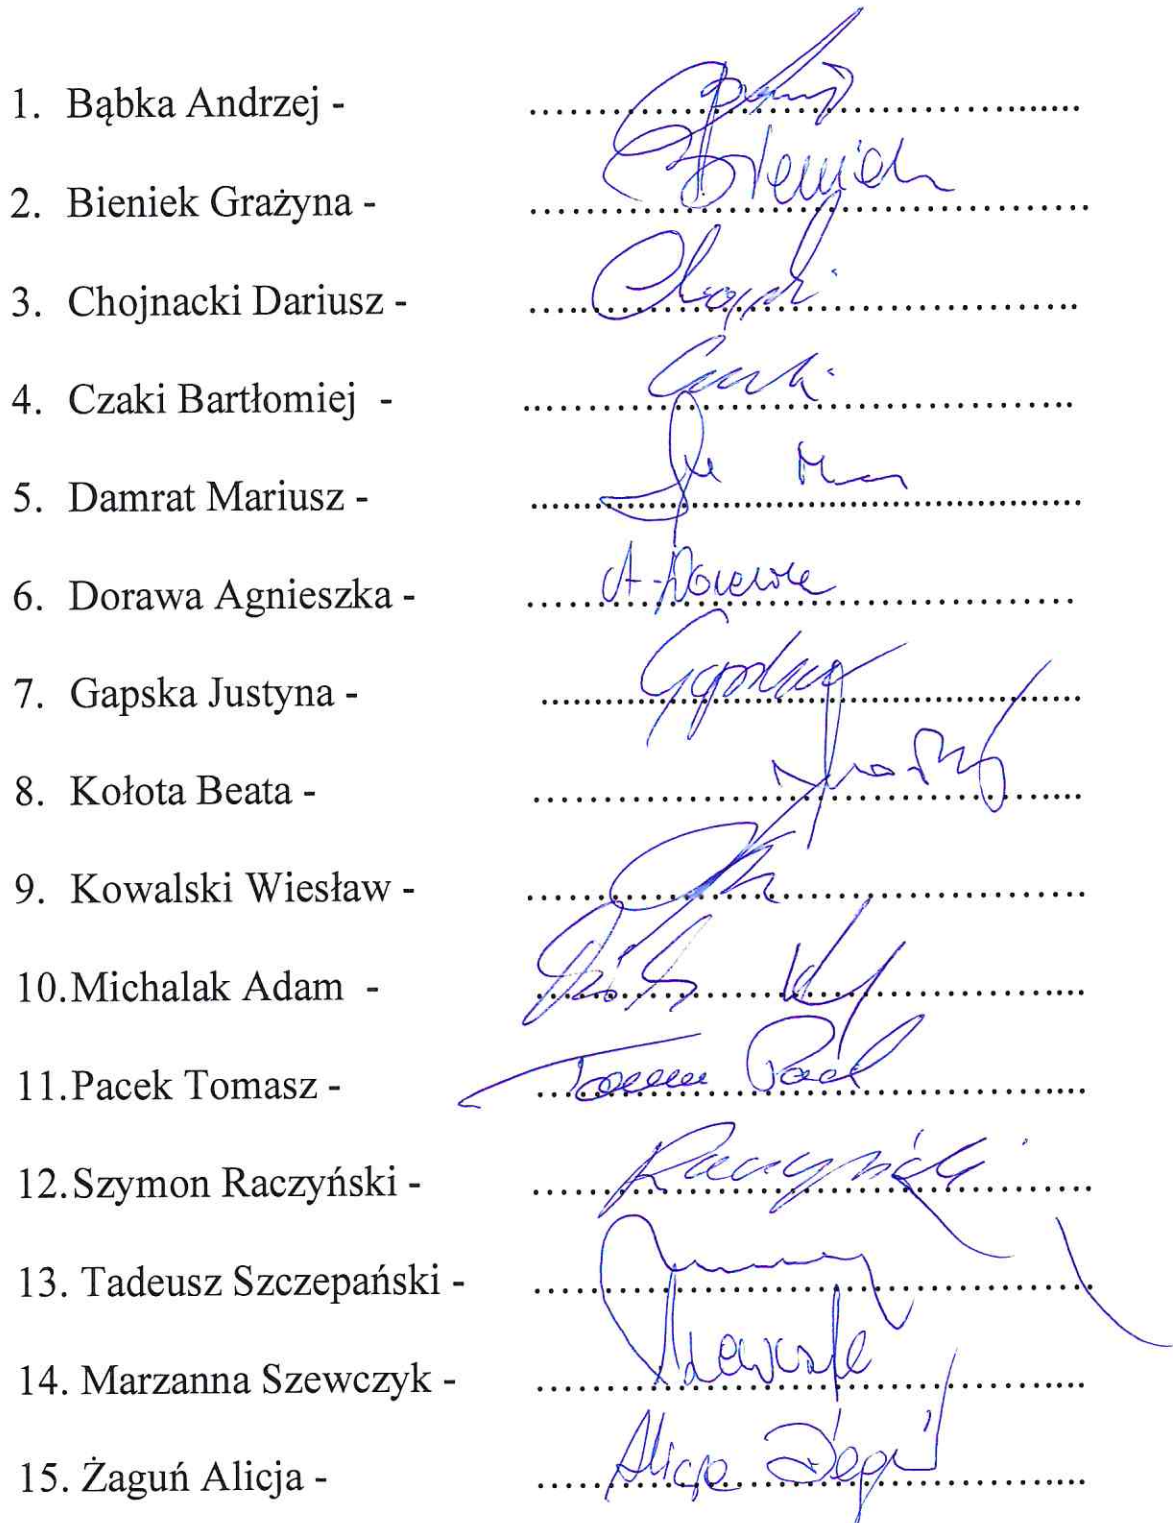 1. Bąbka Andrzej - ................................
2. Bieniek Grażyna - ................................ Bieniek
3. Chojnacki Dariusz - ................................
4. Czaki Bartłomiej - ................................ Czaki
5. Damrat Mariusz - ................................
6. Dorawa Agnieszka - ................................ A. Dorawa
7. Gapska Justyna - ................................ Gapska
8. Kołota Beata - ................................
9. Kowalski Wiesław - ................................
10. Michalak Adam - ................................
11. Pacek Tomasz - ................................ Tomasz Pacek
12. Szymon Raczyński - ................................ Raczyński
13. Tadeusz Szczepański - ................................
14. Marzanna Szewczyk - ................................
15. Żaguń Alicja - ................................ Alicja Żaguń